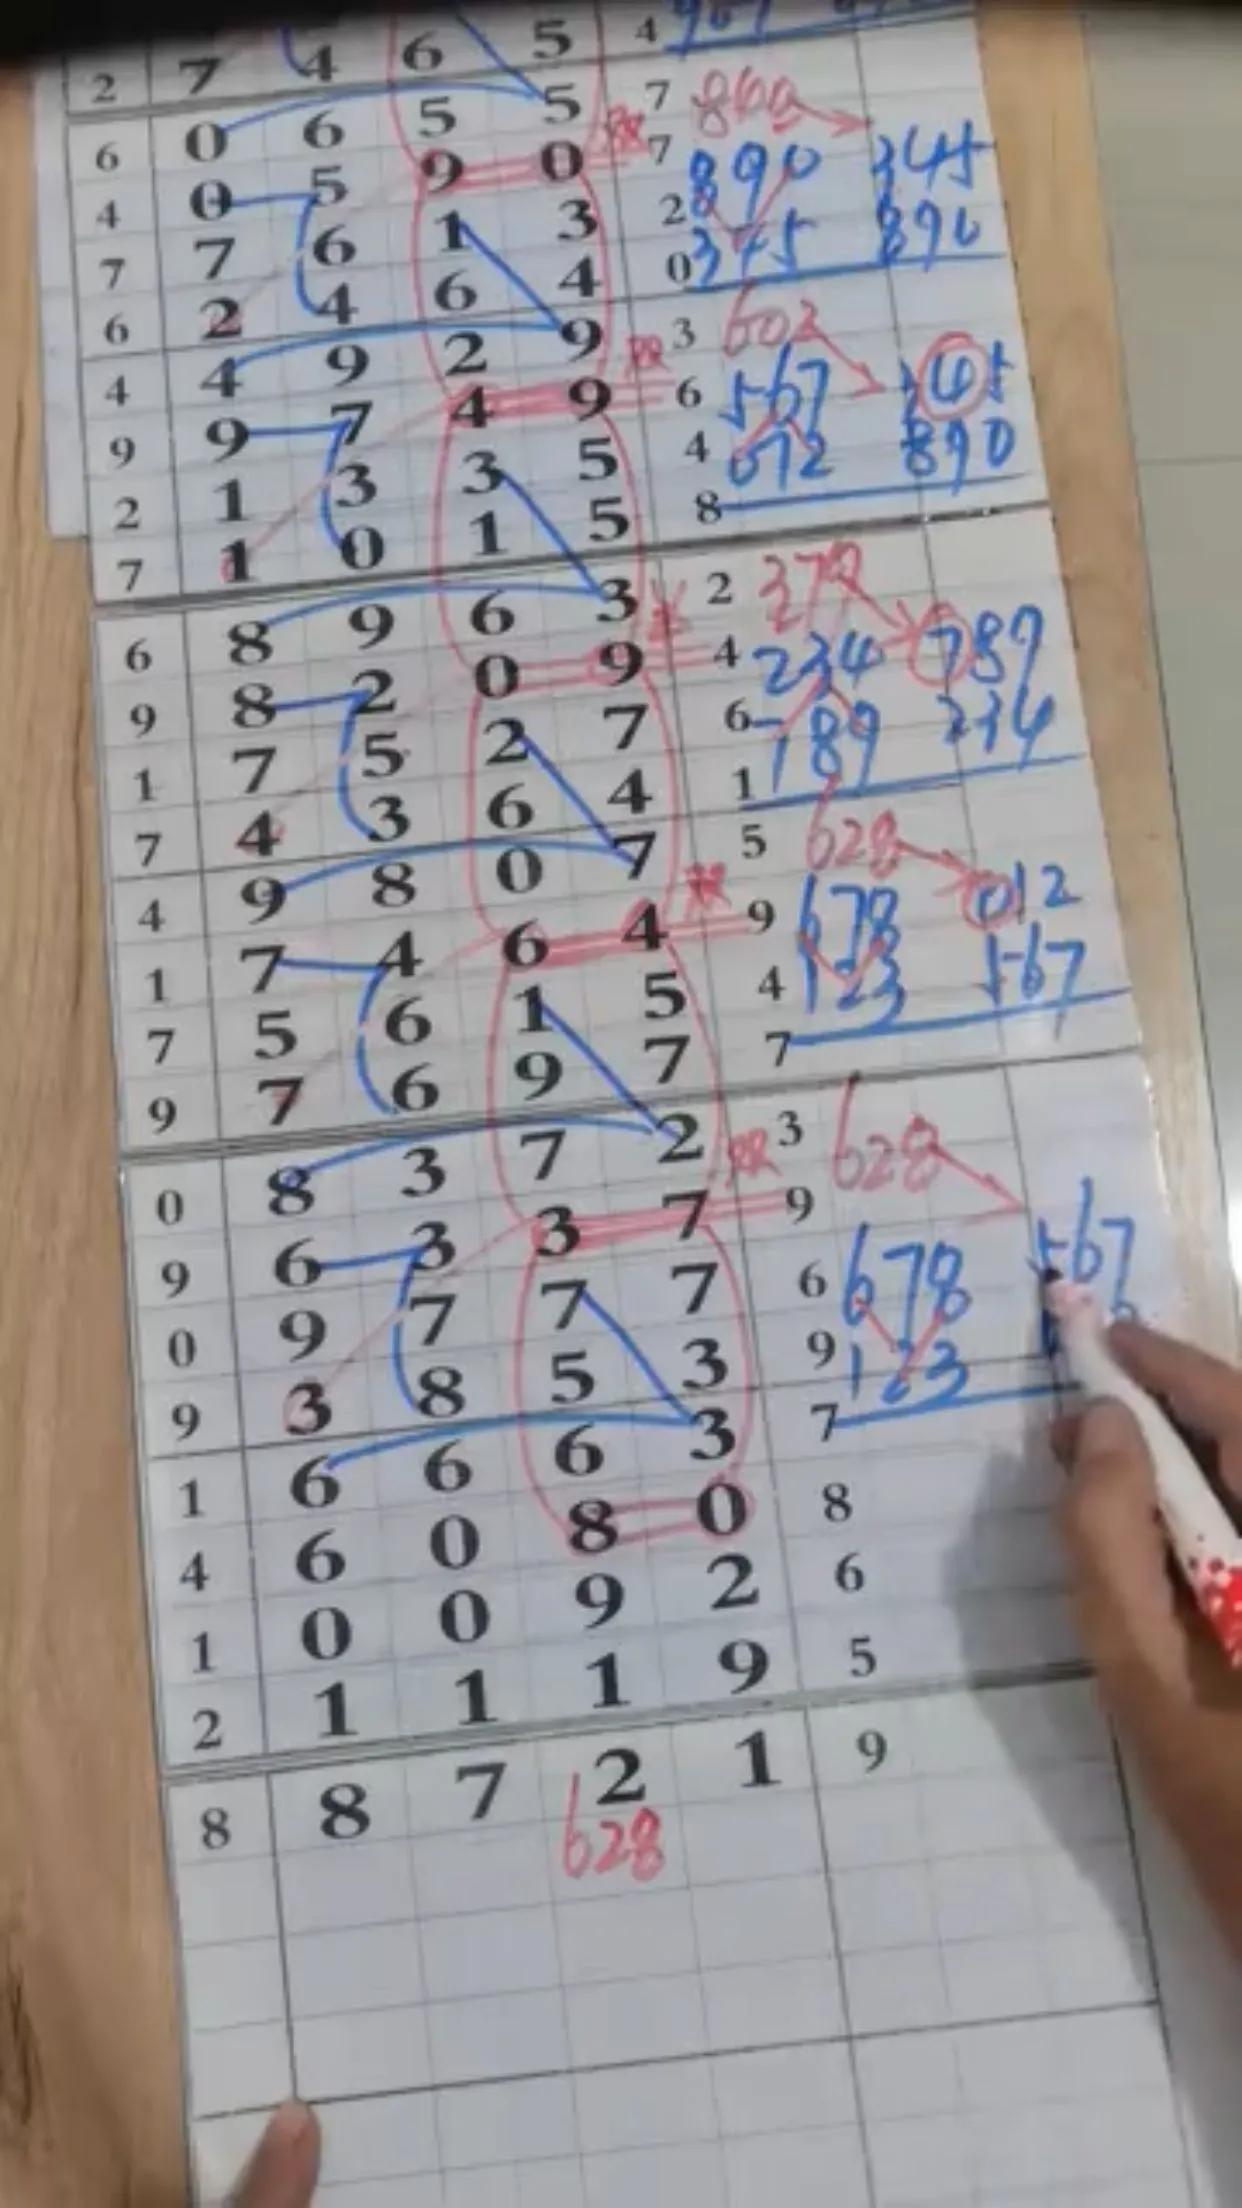 2 7 4 6 5 4
6 0 6 5 5 7
4 0 5 9 0 7 890 345
7 7 6 1 3 2 345 890
6 2 4 6 4 0
4 4 9 2 9 3 602
9 9 7 4 9 6 567 345
2 1 3 3 5 4 012 890
7 1 0 1 5 8
6 8 9 6 3 2 378
9 8 2 0 9 4 234 789
1 7 5 2 7 6 789 234
7 4 3 6 4 1
4 9 8 0 7 5 628
1 7 4 6 4 9 678 012
7 5 6 1 5 4 123 567
9 7 6 9 7 7
0 8 3 7 2 双 3 628
9 6 3 3 7 9
0 9 7 7 7 6 678 567
9 3 8 5 3 9 123
1 6 6 6 3 7
4 6 0 8 0 8
1 0 0 9 2 6
2 1 1 1 9 5
8 8 7 2 1 9
628